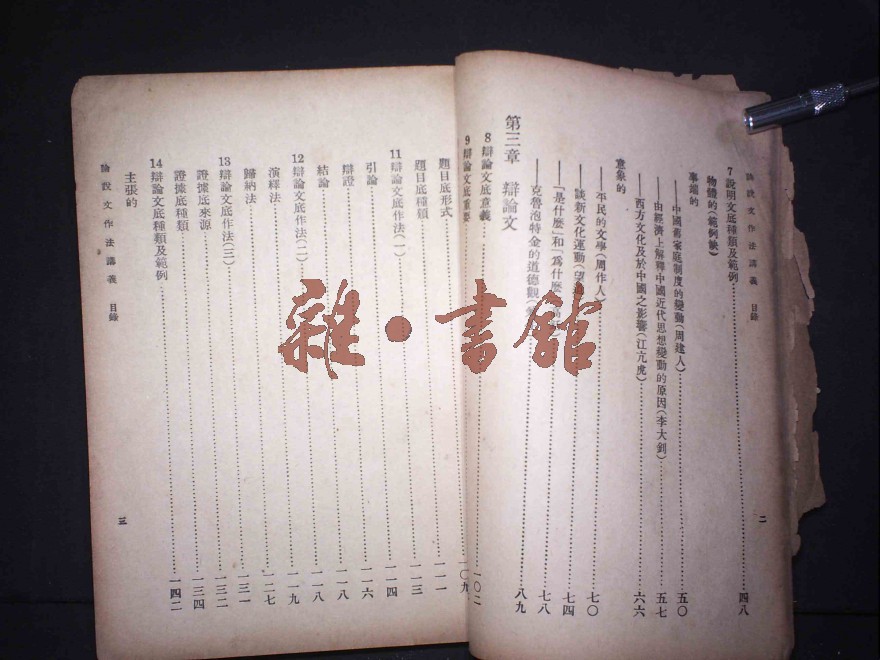 論說文作法講義 目錄
二
7 說明文底種類及範例……四八
物體的(範例缺)
事端的
——中國舊家庭制度的變動(周建人)……五〇
——由經濟上解釋中國近代思想變動的原因(李大釗)……五七
——西方文化及於中國之影響(江亢虎)……六六
意象的
——平民的文學(周作人)……七〇
——談新文化運動……七四
——「是什麼」和「爲什麼……七八
——克魯泡特金的道德觀……八九
第三章 辯論文
8 辯論文底意義……一〇二
9 辯論文底重要……一〇九
題目底形式……一一一
題目底種類……一一三
11 辯論文底作法(一)……一一四
引論……一一六
辯證……一一八
結論……一一八
12 辯論文底作法(二)……一一九
演釋法……一二七
歸納法……一三一
13 辯論文底作法(三)……一三二
證據底來源……一三四
證據底種類
14 辯論文底種類及範例……一四二
主張的
論說文作法講義 目錄
三
雜·書館